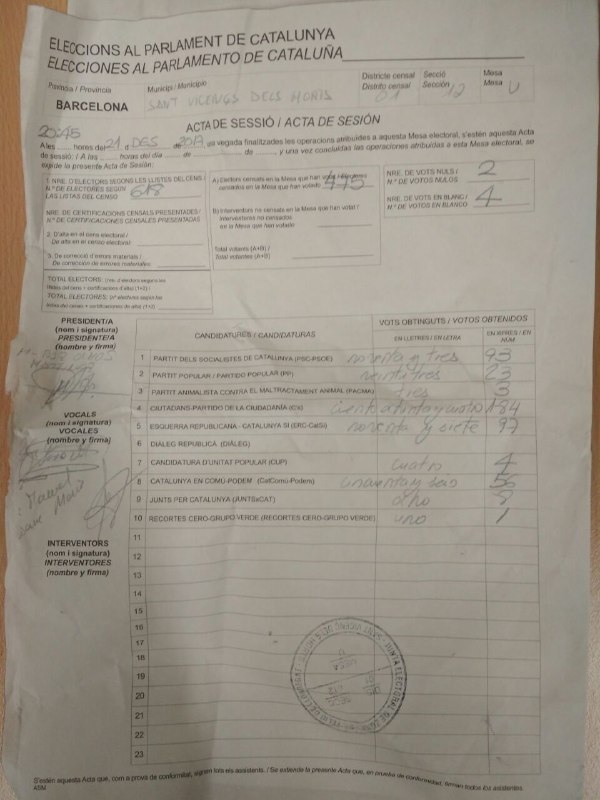 ELECCIONS AL PARLAMENT DE CATALUNYA
ELECCIONES AL PARLAMENTO DE CATALUÑA
Província / Provincia
BARCELONA
Municipi / Municipio
SANT VICENÇS DELS HORTS
Districte censal
Distrito censal
01
Secció
Sección
12
Mesa
Mesa
U
ACTA DE SESSIÓ / ACTA DE SESIÓN
20:45 21 DES 2017
A les hores del de de , una vegada finalitzades les operacions atribuïdes a aquesta Mesa electoral, s'estén aquesta Acta
de sessió: / A las horas del día de de , y una vez concluidas las operaciones atribuidas a esta Mesa electoral, se
expide la presente Acta de Sesión:
1. NRE. D'ELECTORS SEGONS LES LLISTES DEL CENS /
N.º DE ELECTORES SEGÚN
LAS LISTAS DEL CENSO
618
NRE. DE CERTIFICACIONS CENSALS PRESENTADES /
N.º DE CERTIFICACIONES CENSALES PRESENTADAS
2. D'alta en el cens electoral /
De alta en el censo electoral
3. De correcció d'errors materials /
De corrección de errores materiales
TOTAL ELECTORS:
TOTAL ELECTORES:
A) Electors censats en la Mesa que han votat / Electores
censados en la Mesa que han votado
B) Interventors no censats en la Mesa que han votat /
Interventores no censados
en la Mesa que han votado
Total votants (A+B) /
Total votantes (A+B)
NRE. DE VOTS NULS /
N.º DE VOTOS NULOS
2
NRE. DE VOTS EN BLANC /
N.º DE VOTOS EN BLANCO
4
PRESIDENT/A
(nom i signatura)
PRESIDENTE/A
(nombre y firma)
VOCALS
(nom i signatura)
VOCALES
(nombre y firma)
INTERVENTORS
(nom i signatura)
INTERVENTORES
(nombre y firma)
CANDIDATURES / CANDIDATURAS
VOTS OBTINGUTS / VOTOS OBTENIDOS
EN LLETRES / EN LETRA
EN XIFRES / EN
NÚM
1 PARTIT DELS SOCIALISTES DE CATALUNYA (PSC-PSOE) noventa y tres 93
2 PARTIT POPULAR / PARTIDO POPULAR (PP) veintitres 23
3 PARTIT ANIMALISTA CONTRA EL MALTRACTAMENT ANIMAL (PACMA) tres 3
4 CIUTADANS-PARTIDO DE LA CIUDADANÍA (C's) 184
5 ESQUERRA REPUBLICANA - CATALUNYA SÍ (ERC-CatSí) noventa y siete 97
6 DIÀLEG REPUBLICÀ (DIÀLEG)
7 CANDIDATURA D'UNITAT POPULAR (CUP) cuatro 4
8 CATALUNYA EN COMÚ-PODEM (CatComú-Podem) cincuenta y seis 56
9 JUNTS PER CATALUNYA (JUNTSxCAT) ocho 8
10 RECORTES CERO-GRUPO VERDE (RECORTES CERO-GRUPO VERDE) uno 1
11
12
13
14
15
16
17
18
19
20
21
22
23
S'estén aquesta Acta que, com a prova de conformitat, signen tots els assistents. / Se extiende la presente Acta que, en prueba de conformidad, firman todos los asistentes.